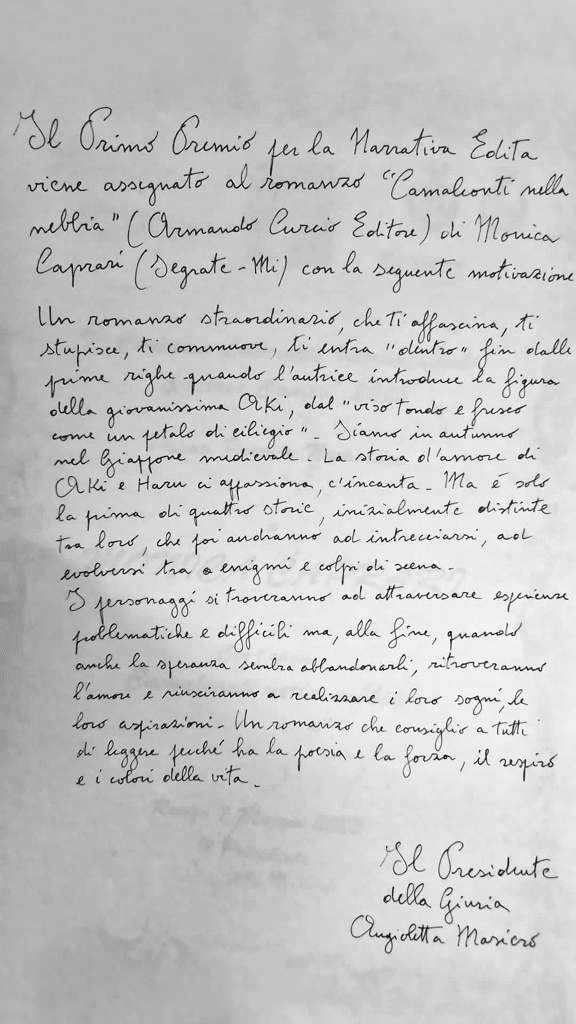 Il Primo Premio per la Narrativa Edita
viene assegnato al romanzo "Camaleonti nella
nebbia" (Armando Curcio Editore) di Monica
Caprari (Segrate - Mi) con la seguente motivazione
Un romanzo straordinario, che ti affascina, ti
stupisce, ti commuove, ti entra "dentro" fin dalle
prime righe quando l'autrice introduce la figura
della giovanissima Aki, dal "viso tondo e fresco
come un petalo di ciliegio". Siamo in autunno
nel Giappone medievale. La storia d'amore di
Aki e Haru ci appassiona, c'incanta. Ma è solo
la prima di quattro storie, inizialmente distinte
tra loro, che poi andranno ad intrecciarsi, ad
evolversi tra enigmi e colpi di scena.
I personaggi si troveranno ad attraversare esperienze
problematiche e difficili ma, alla fine, quando
anche la speranza sembra abbandonarli, ritroveranno
l'amore e riusciranno a realizzare i loro sogni, le
loro aspirazioni. Un romanzo che consiglio a tutti
di leggere perché ha la poesia e la forza, il respiro
e i colori della vita.
Il Presidente
della Giuria
Angioletta Masiero